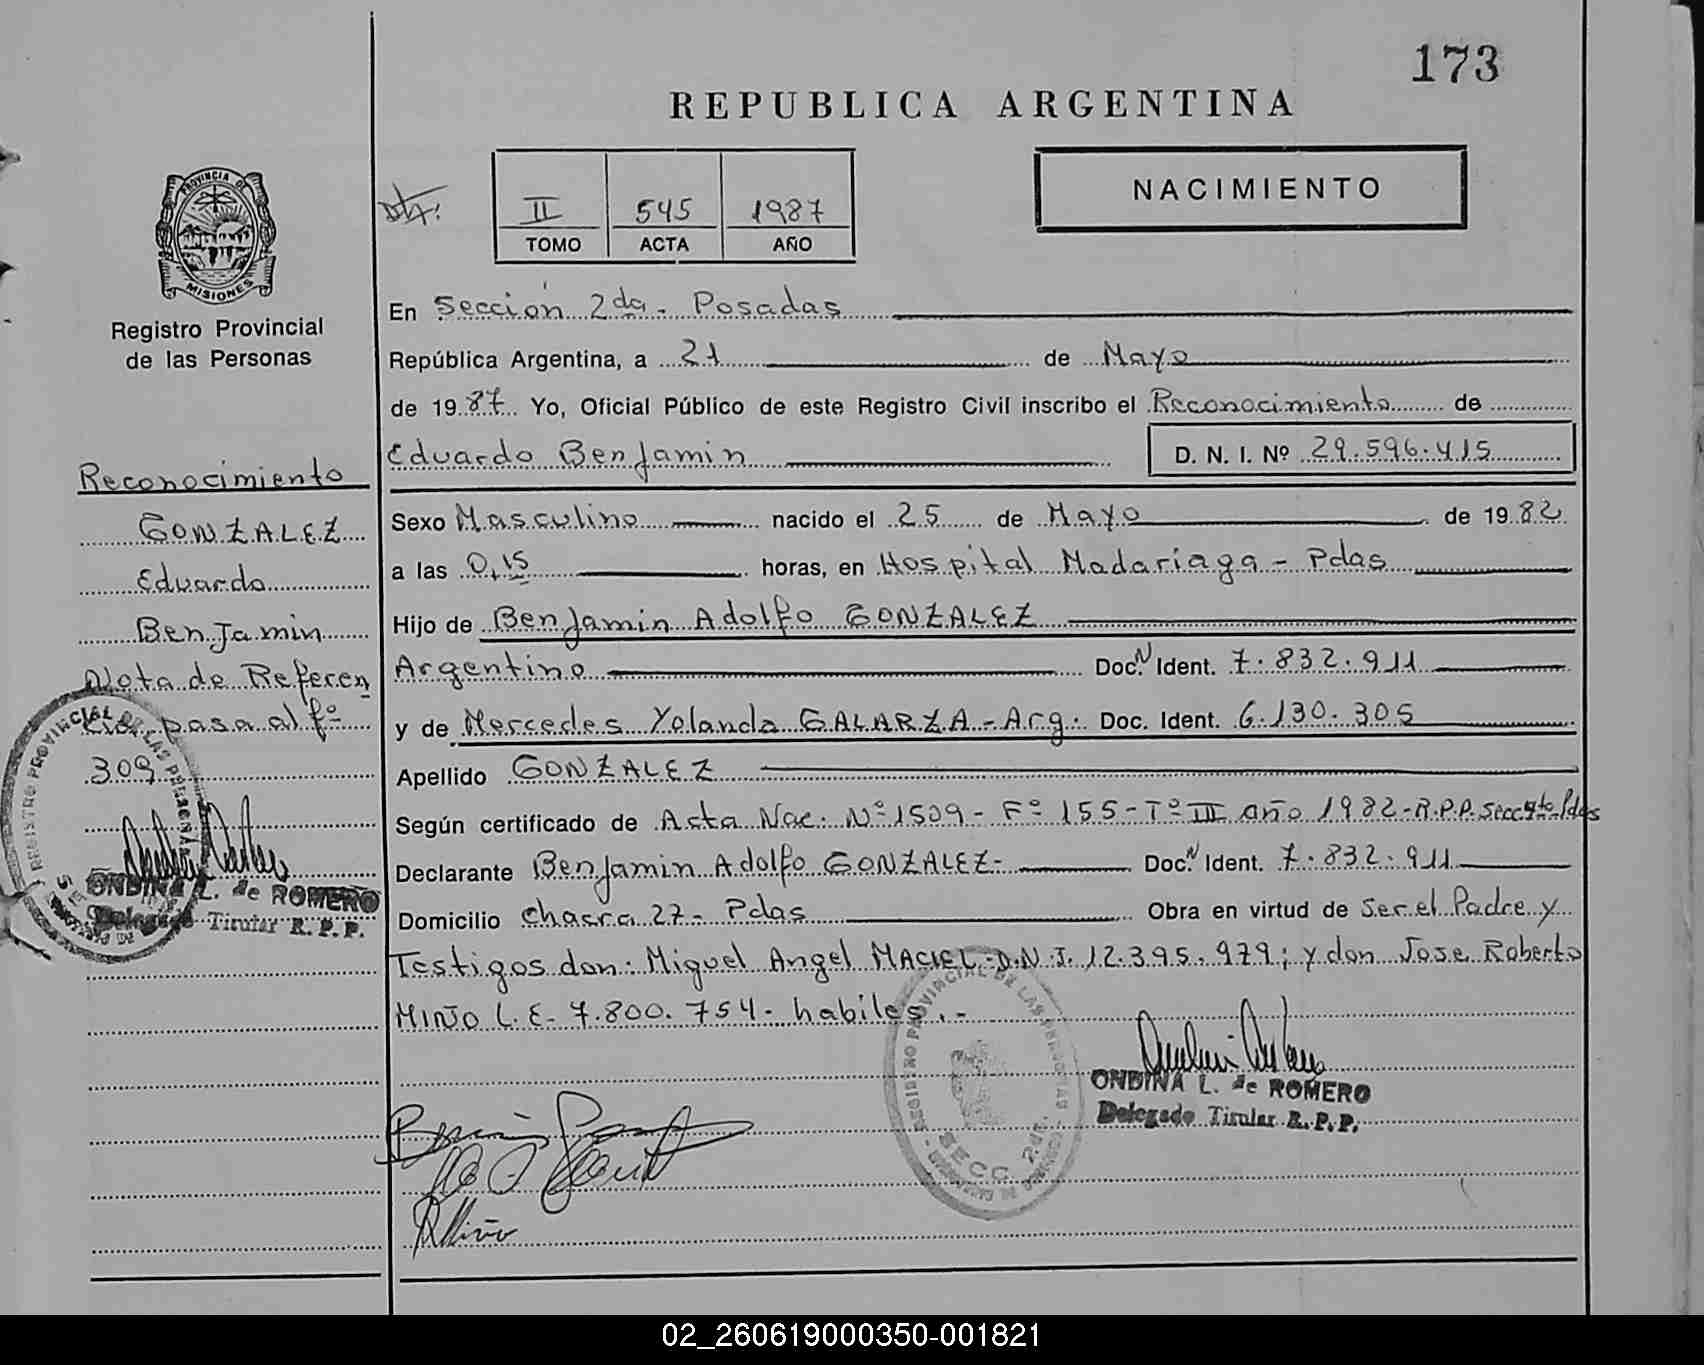 173
REPUBLICA ARGENTINA
NACIMIENTO
II 545 1987
TOMO ACTA AÑO
PROVINCIA DE
MISIONES
Registro Provincial
de las Personas
En Sección 2da. Posadas
República Argentina, a 21 de Mayo
de 1987 Yo, Oficial Público de este Registro Civil inscribo el Reconocimiento de
Eduardo Benjamin D. N. I. Nº 29.596.415
Sexo Masculino nacido el 25 de Mayo de 1982
a las 0,15 horas, en Hospital Madariaga - Pdas
Hijo de Benjamin Adolfo GONZALEZ
Argentino Doc.N Ident. 7.832.911
y de Mercedes Yolanda GALARZA - Arg. Doc. Ident. 6.130.305
Apellido GONZALEZ
Según certificado de Acta Nac. Nº 1509 - Fº 155 - Tº III año 1982 - R.P.P. Secc 4to Pdas
Declarante Benjamin Adolfo GONZALEZ- Doc.N Ident. 7.832.911
Domicilio Chacra 27- Pdas Obra en virtud de Ser el Padre y
Testigos don: Miguel Angel MACIEL D.N.I. 12.395.979; y don Jose Roberto
MIÑO L.E. 7.800.754- habiles.-
ONDINA L. de ROMERO
Delegado Titular R.P.P.
REGISTRO PROVINCIAL DE LAS PERSONAS
SECC. 2da.
Miño
Reconocimiento
GONZALEZ
Eduardo
Benjamin
Nota de Referen
cia pasa al fº
309
REGISTRO PROVINCIAL DE LAS PERSONAS
ONDINA L. de ROMERO
Delegado Titular R. P. P.
02_260619000350-001821